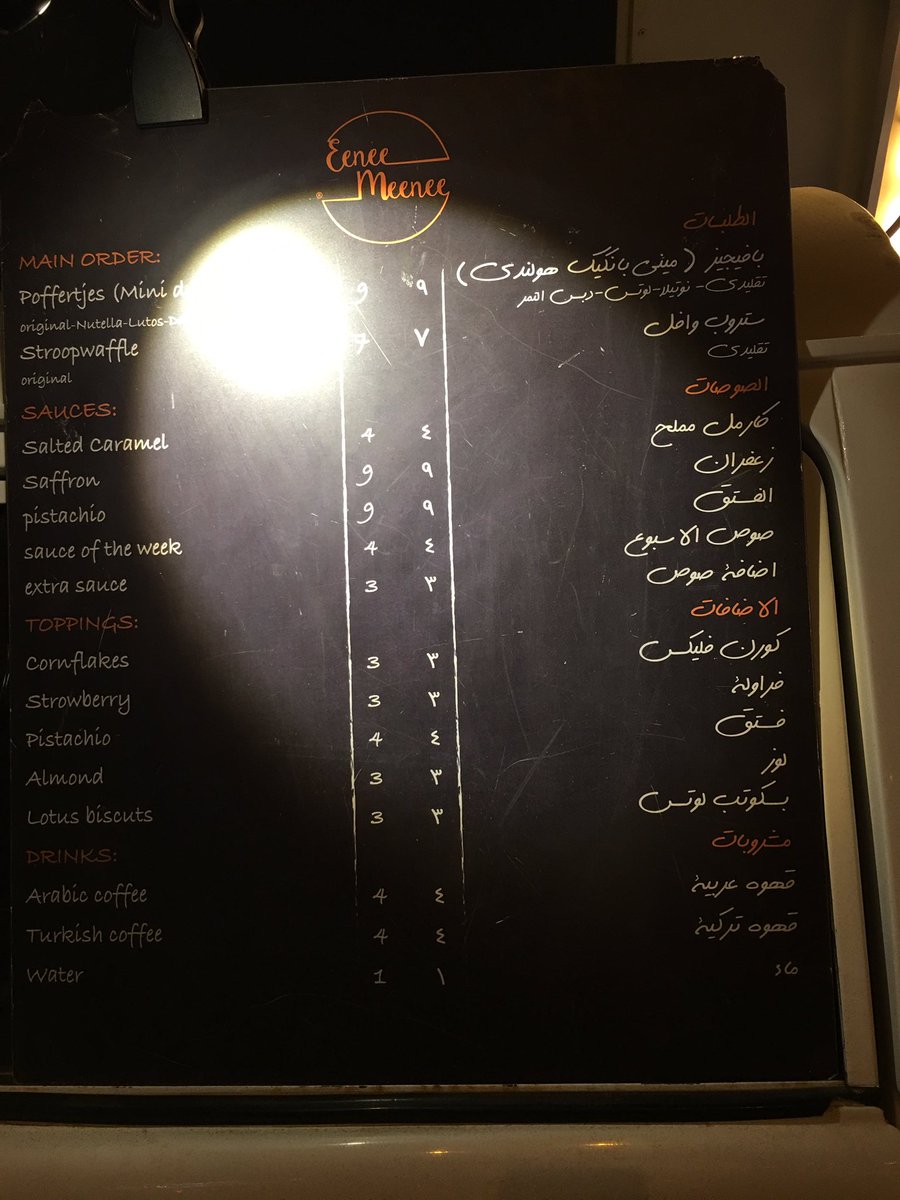 Eenee
Meenee
®
MAIN ORDER: الطلبات
Poffertjes (Mini 9 ٩ بافيجيز (ميني بانكيك هولندي)
original-Nutella-Lutos- تقليدي-نوتيلا-لوتس-دبس احمر
Stroopwaffle 7 ٧ ستروب وافل
original تقليدي
SAUCES: الصوصات
Salted Caramel 4 ٤ كارمل مملح
Saffron 9 ٩ زعفران
pistachio 9 ٩ الفستق
sauce of the week 4 ٤ صوص الاسبوع
extra sauce 3 ٣ اضافة صوص
TOPPINGS: الاضافات
Cornflakes 3 ٣ كورن فليكس
Strowberry 3 ٣ فراولة
Pistachio 4 ٤ فستق
Almond 3 ٣ لوز
Lotus biscuts 3 ٣ بسكوتب لوتس
DRINKS: مشروبات
Arabic coffee 4 ٤ قهوه عربية
Turkish coffee 4 ٤ قهوه تركية
Water 1 ١ ماء